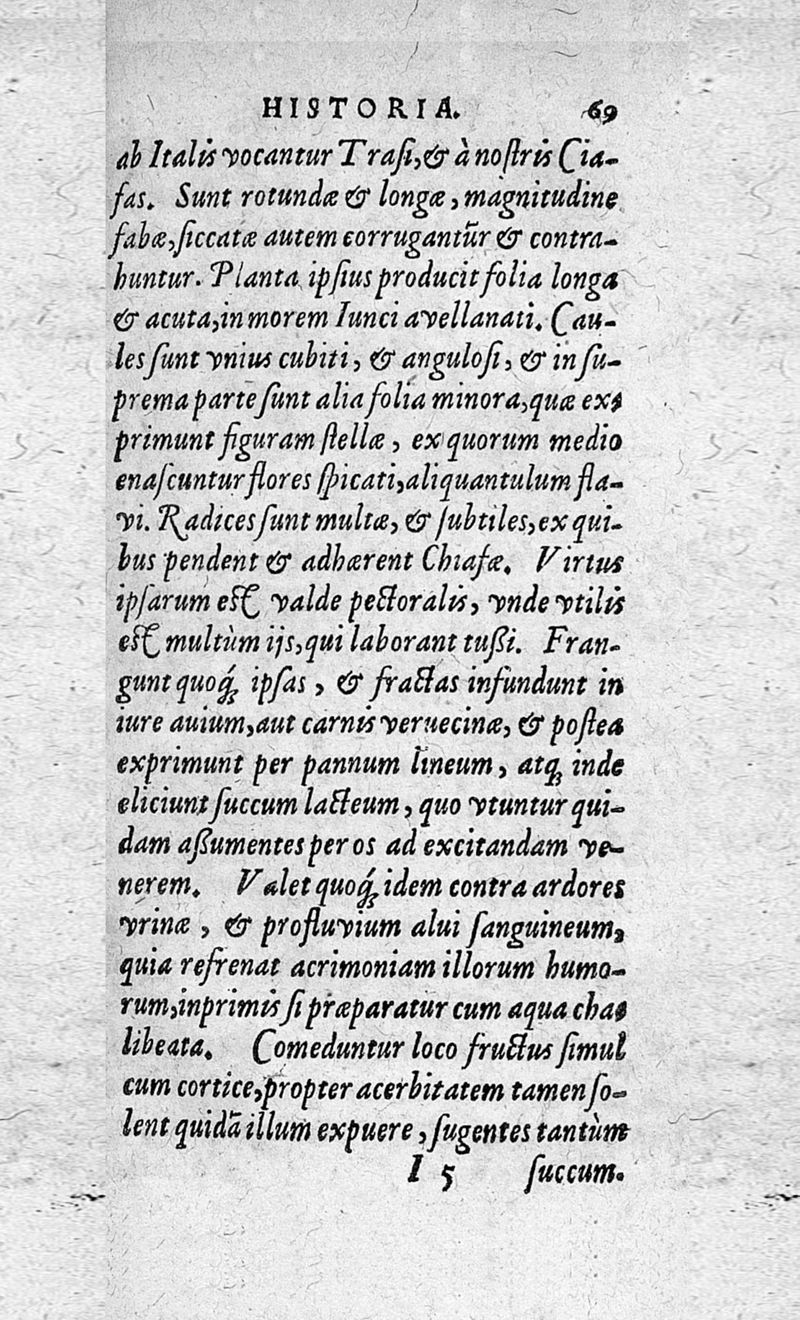 HISTORIA. 69
ab Italis vocantur Trasi, & à nostris Cia-
fas. Sunt rotundæ & longæ, magnitudine
fabæ, siccatæ autem corrugantur̃ & contra-
huntur. Planta ipsius producit folia longa
& acuta, in morem Iunci avellanati. Cau-
les sunt vnius cubiti, & angulosi, & in su-
prema parte sunt alia folia minora, quæ ex-
primunt figuram stellæ, ex quorum medio
enascuntur flores spicati, aliquantulum fla-
vi. Radices sunt multæ, & subtiles, ex qui-
bus pendent & adhærent Chiafæ. Virtus
ipsarum est valde pectoralis, vnde vtilis
est multùm ijs, qui laborant tußi. Fran-
gunt quoq́ꝫ ipsas, & fractas infundunt in
iure avium, aut carnis veruecinæ, & postea
exprimunt per pannum lineum, atqꝫ inde
eliciunt succum lacteum, quo vtuntur qui-
dam aßumentes per os ad excitandam ve-
nerem. Valet quoq́ꝫ idem contra ardores
vrinæ, & profluvium alui sanguineum,
quia refrenat acrimoniam illorum humo-
rum, inprimis si præparatur cum aqua cha-
libeata. Comeduntur loco fructus simul
cum cortice, propter acerbitatem tamen so-
lent quidã illum expuere, sugentes tantùm
I 5 succum.